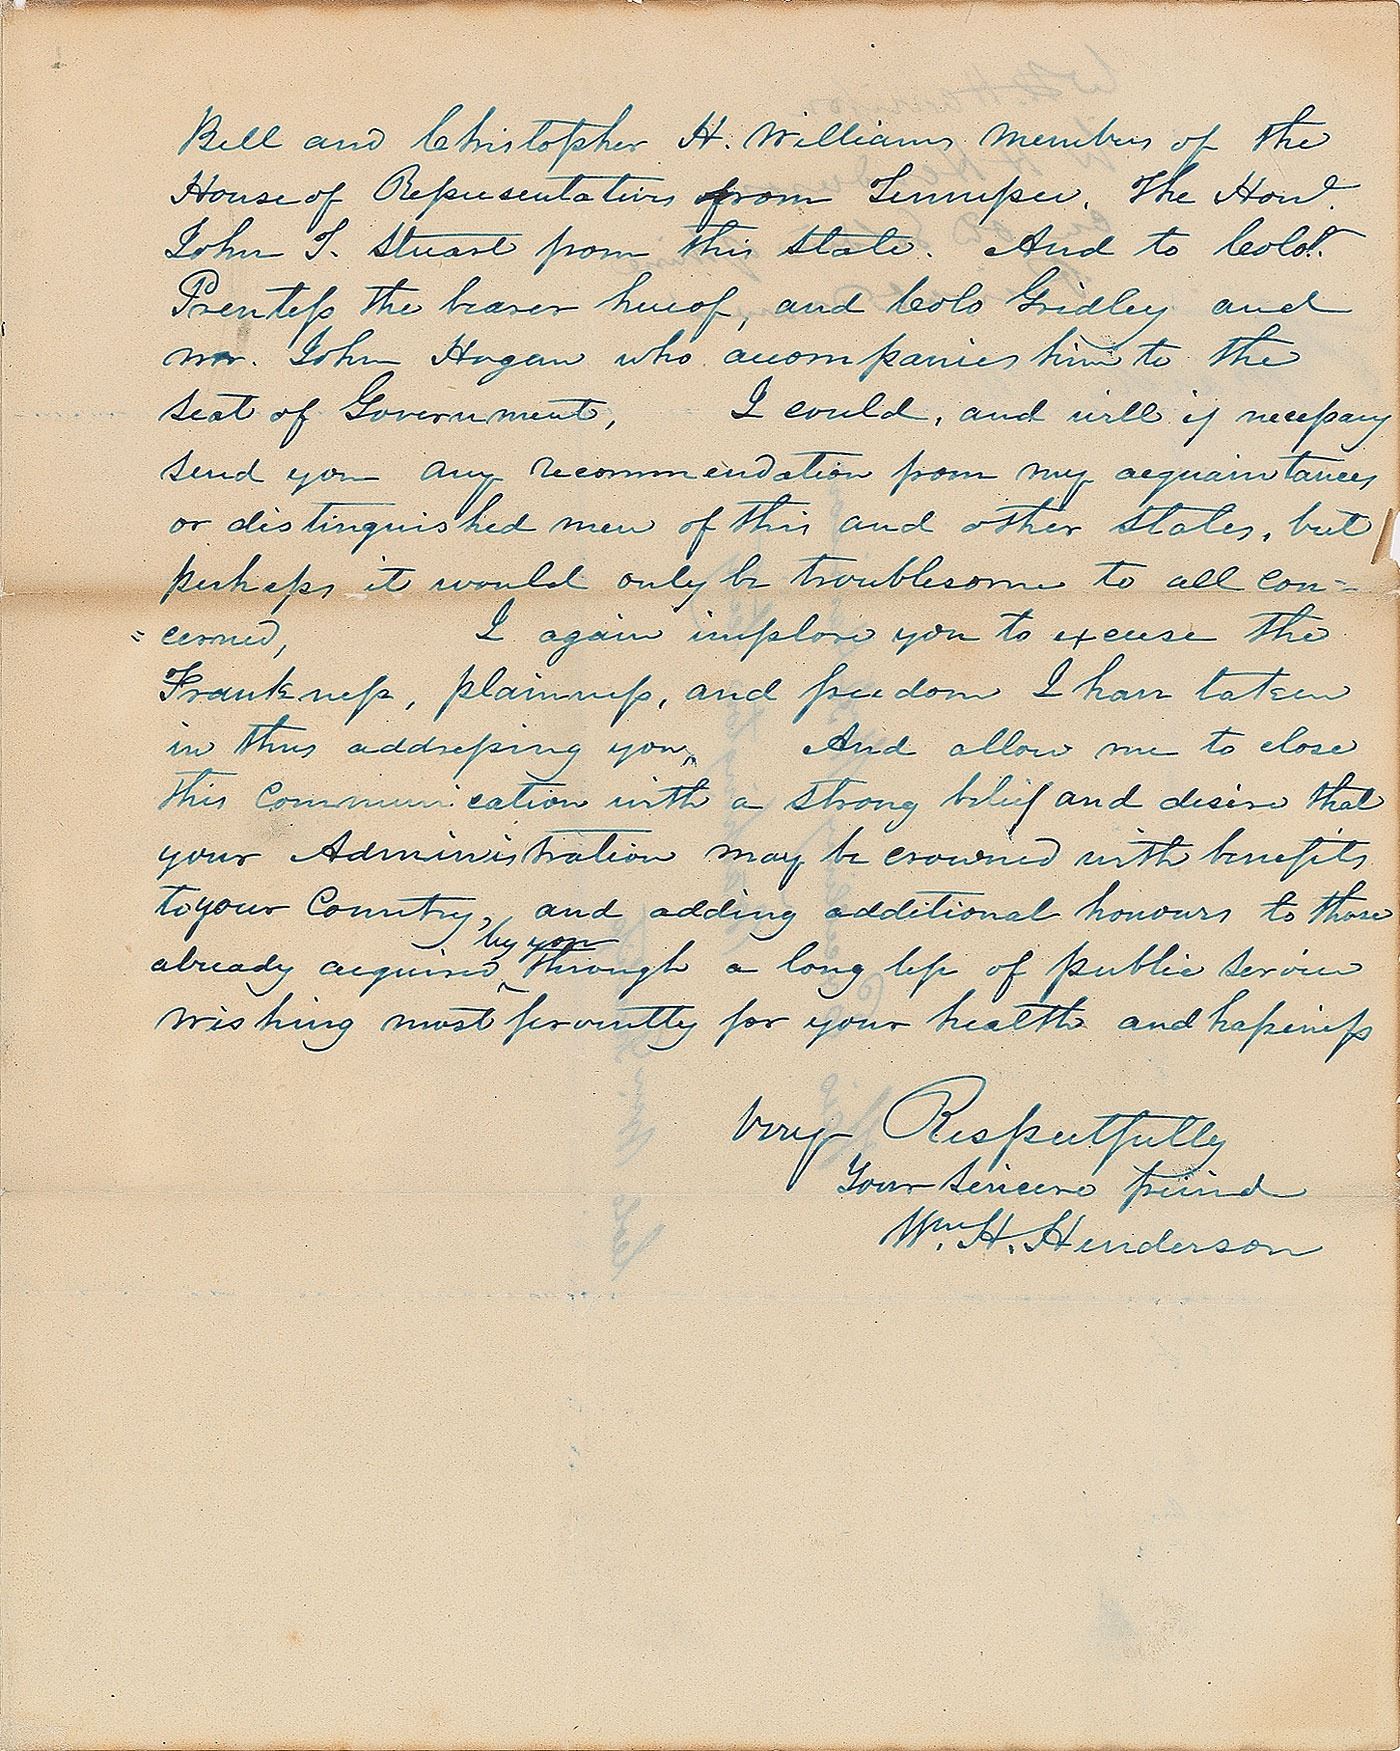 Bell and Christopher H. Williams members of the
House of Representatives from Tennessee. The Honl.
John T. Stuart from this state. And to Colol.
Prentess the bearer hereof, and Colo Gridley and
Mr. John Hogan who accompanies him to the
seat of Government, I could, and will if necessary
send you any recommendation from my acquaintances
or distinguished men of this and other states, but
perhaps it would only be troublesome to all con=
=cerned, I again implore you to excuse the
Frankness, plainness, and freedom I have taken
in thus addressing you, And allow me to close
this communication with a strong belief and desire that
your Administration may be crowned with benefits
to your Country, and adding additional honours to those
already acquired by you through a long life of public service
Wishing most fervently for your health and hapiness
Very Respectfully
Your sincere friend
Wm. H. Henderson